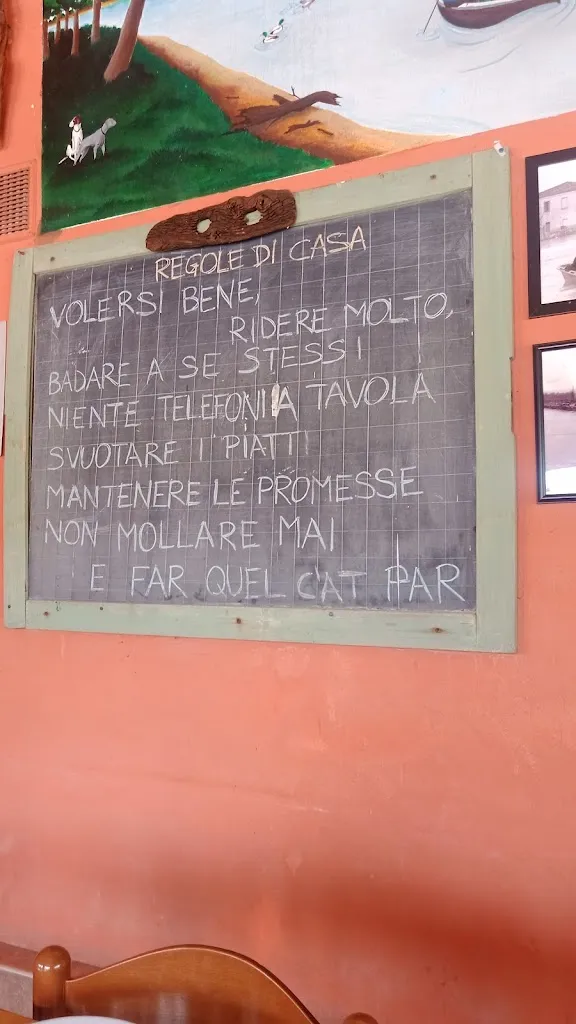 REGOLE DI CASA
VOLERSI BENE,
RIDERE MOLTO,
BADARE A SE STESSI
NIENTE TELEFONI A TAVOLA
SVUOTARE I PIATTI
MANTENERE LE PROMESSE
NON MOLLARE MAI
E FAR QUEL CAT PAR